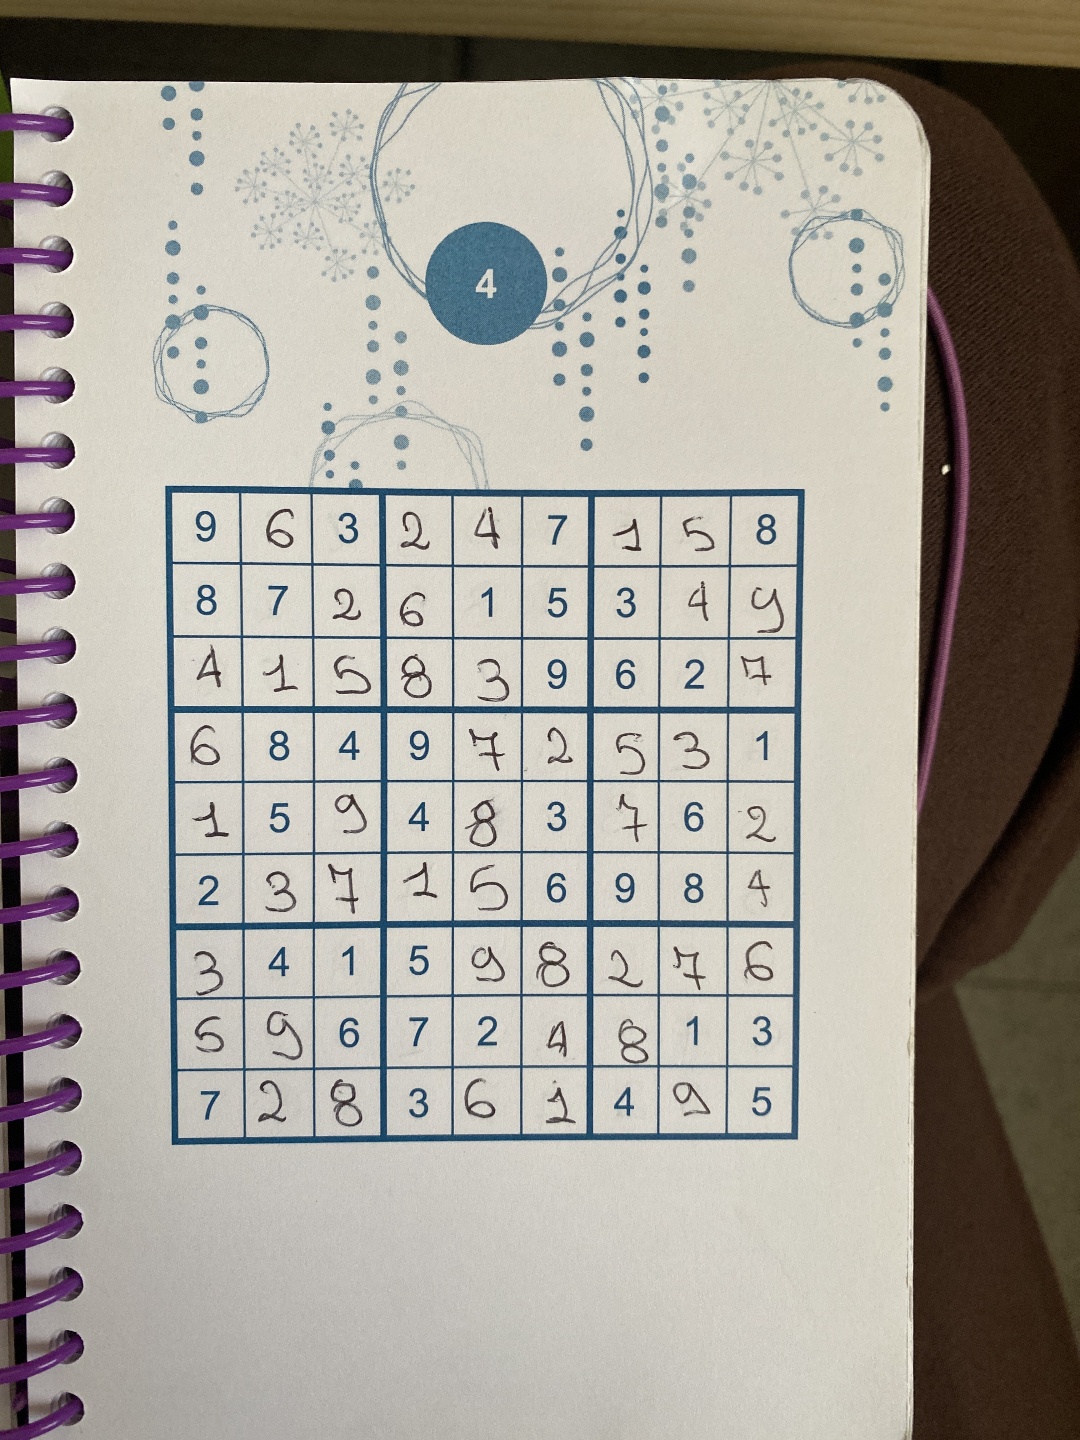 4
9 6 3 2 4 7 1 5 8
8 7 2 6 1 5 3 4 9
4 1 5 8 3 9 6 2 7
6 8 4 9 7 2 5 3 1
1 5 9 4 8 3 7 6 2
2 3 7 1 5 6 9 8 4
3 4 1 5 9 8 2 7 6
5 9 6 7 2 4 8 1 3
7 2 8 3 6 1 4 9 5